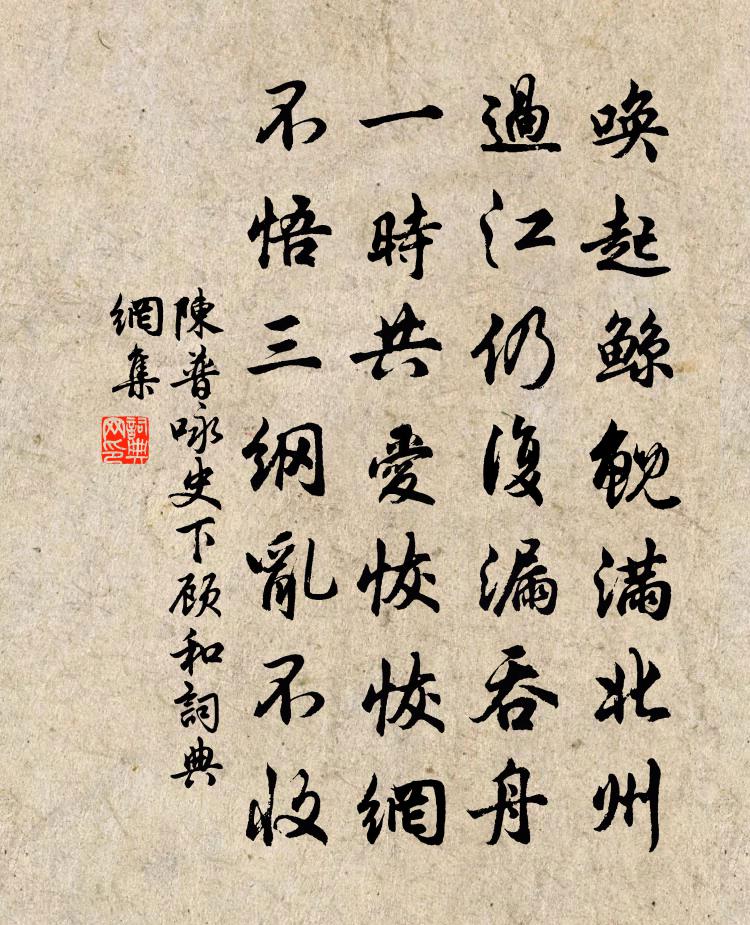 喚起鲸鲵満北州
過江仍復漏吞舟
一時共愛恢恢網
不悟三纲亂不收
陳普咏史下顾和詞典
網集
詞典
网印